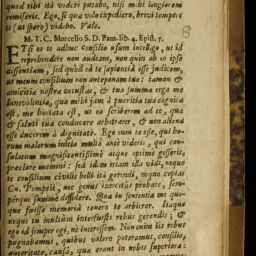 quod tibi ità videri putabo, nisi mihi longiorem
remiseris. Ego, si quæ volo expediero, brevi tempore
te (ut spero) videbo. Vale.
M. T. C. Marcello S. D. Pam. lib. 4. Epist. 7.
ETsi eo te adhuc consilio usum intelligo, ut id
reprehendere non audeam, non quin ab eo ipse
dissentiam, sed quòd ea te sapientiâ esse judicem,
ut meum consilium non anteponam tuo: tamen &
amicitiæ nostræ vetustas, & tua summa erga me
benevolentia, quæ mihi jam à pueritia tua cognita
est, me hortata est, ut ea scriberem ad te, quæ
& saluti tuæ conducere arbitrarer, & non aliena
esse ducerem à dignitate. Ego eum te esse, qui ho-
rum malorum initia multò antè videris, qui con-
sulatum magnificentissimè atque optimè gesseris,
præclarè memini: sed idem etiam illa vidi, neque
te consilium civilis belli ità gerendi, neque copias
Cn. Pompeii, nec genus exercitûs probare, sem-
pérque summè diffidere. Qua in sententia me quo-
que fuisse memoriâ tenere te arbitror. Itaque
neque tu multùm interfuisti rebus gerendis; &
ego id semper egi, ne interessem. Non enim iis rebus
pugnabamus, quibus valere poteramus, consilio,
autoritate, causâ, quæ erant in nobis superiora:
8